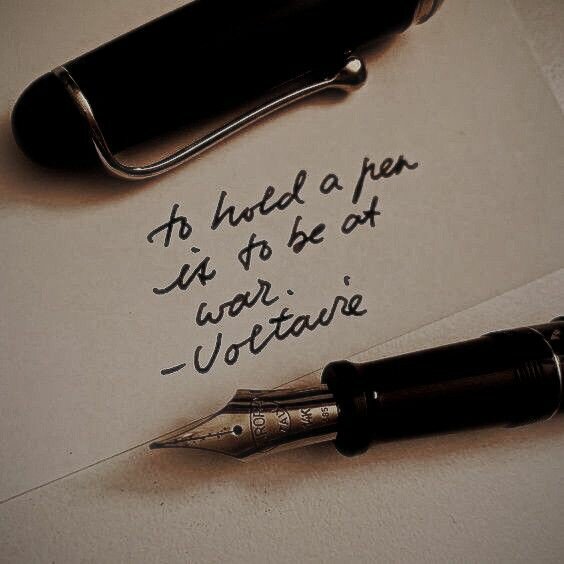 to hold a pen
is to be at
war.
-Voltaire
14K
585